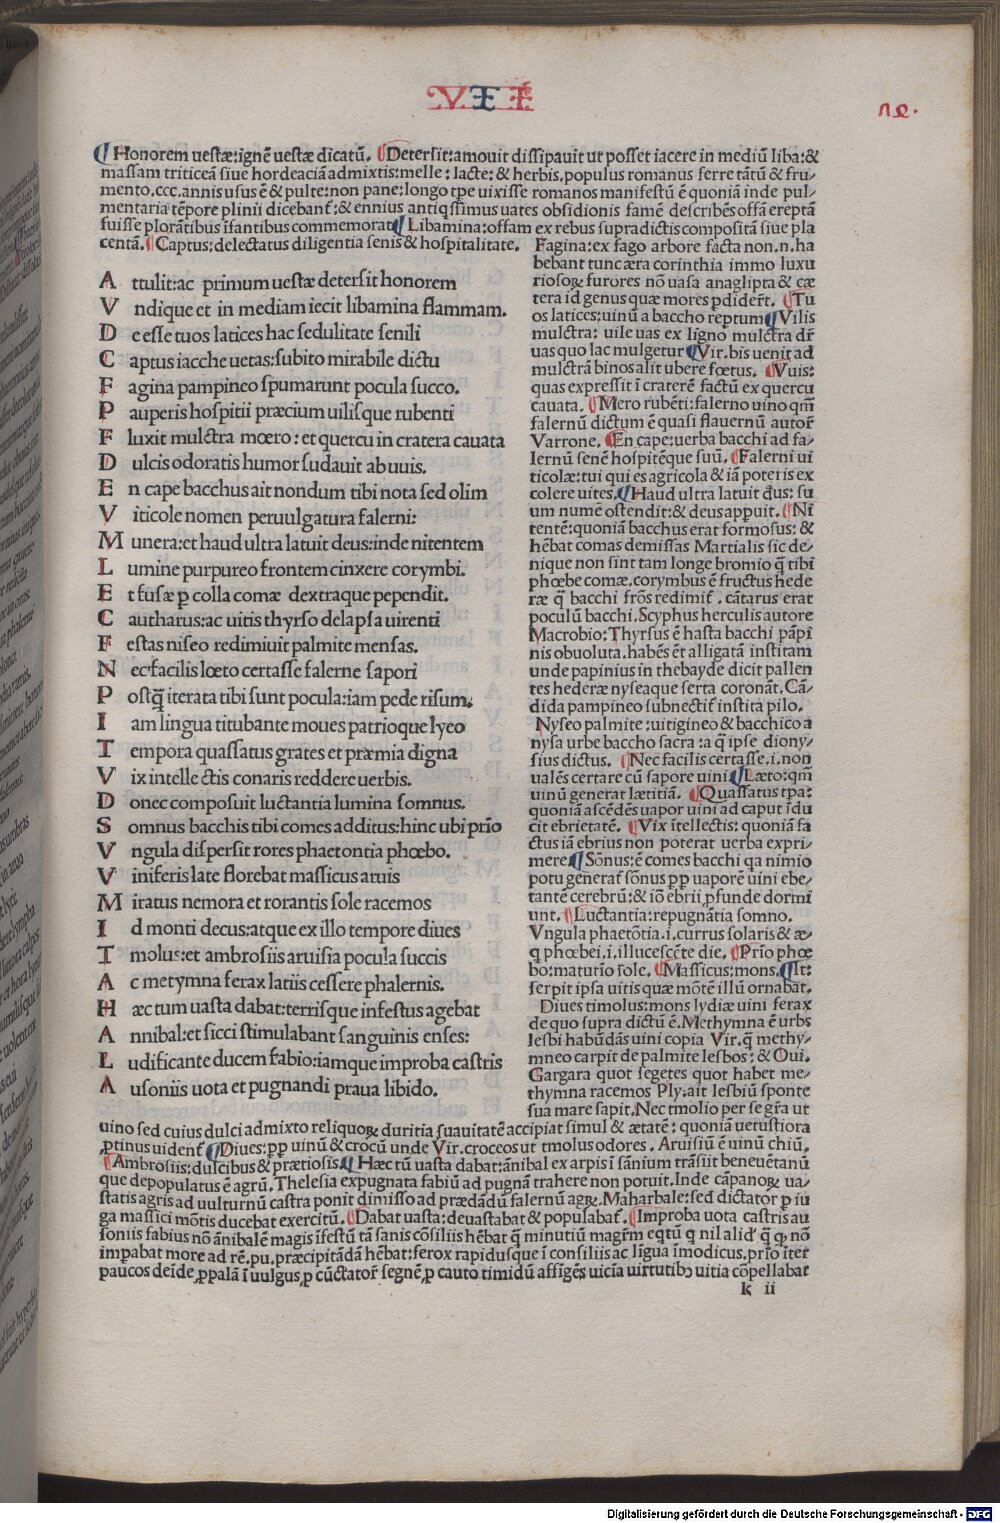 VII
¶Honorem uestæ:ignē uestæ dicatū. ¶Detersit:amouit dissipauit ut posset iacere in mediū liba:&
massam triticeā siue hordeaciā admixtis:melle: lacte: & herbis.populus romanus ferre tātū & fru-
mento.ccc.annis usus ē & pulte:non pane:longo tp̄e uixisse romanos manifestū ē quoniā inde pul-
mentaria tēpore plinii dicebant̄:& ennius antiqssimus uates obsidionis famē describēs offā ereptā
fuisse ploratibus īfantibus commemorat ¶Libamina:offam ex rebus supradictis compositā siue pla
centā. ¶Captus:delectatus diligentia senis & hospitalitate.
A ttulit:ac primum uestæ detersit honorem
V ndique et in mediam iecit libamina flammam.
D e esse tuos latices hac sedulitate senili
C aptus iacche uetas:subito mirabile dictu
F agina pampineo spumarunt pocula succo.
P auperis hospitii præcium uilisque rubenti
F luxit mulctra mœro: et quercu in cratera cauata
D ulcis odoratis humor sudauit ab uuis.
E n cape bacchus ait nondum tibi nota sed olim
V iticole nomen peruulgatura falerni:
M unera:et haud ultra latuit deus:inde nitentem
L umine purpureo frontem cinxere corymbi.
E t fusæ p colla comæ dextraque pependit.
C autharus:ac uitis thyrso delapsa uirenti
F estas niseo redimiuit palmite mensas.
N ec facilis lœto certasse falerne sapori
P ostq̄ iterata tibi sunt pocula:iam pede risum.
I am lingua titubante moues patrioque lyeo
T empora quassatus grates et præmia digna
V ix intelle ctis conaris reddere uerbis.
D onec composuit luctantia lumina somnus.
S omnus bacchis tibi comes additus:hinc ubi prīo
V ngula dispersit rores phaetontia phœbo.
V iniferis late florebat massicus aruis
M iratus nemora et rorantis sole racemos
I d monti decus:atque ex illo tempore diues
T molus:et ambrosiis aruisia pocula succis
A c metymna ferax latiis cessere phalernis.
H æc tum uasta dabat:terrisque infestus agebat
A nnibal:et sicci stimulabant sanguinis enses:
L udificante ducem fabio:iamque improba castris
A usoniis uota et pugnandi praua libido.
Fagina:ex fago arbore facta non.n.ha
bebant tunc æra corinthia immo luxu
riosoꝝ furores nō uasa anaglipta & cæ
tera id genus quæ mores pdider̄t. ¶Tu
os latices:uinū a baccho reptum ¶Vilis
mulctra: uile uas ex ligno mulctra dr̄
uas quo lac mulgetur ¶Vir.bis uenit ad
mulctrā binos alit ubere fœtus. ¶Vuis:
quas expressit ī craterē factū ex quercu
cauata. ¶Mero rubēti:falerno uino qm̄
falernū dictum ē quasi flauernū autor̄
Varrone. ¶En cape:uerba bacchi ad fa-
lernū senē hospitēque suū. ¶Falerni ui
ticolæ:tui qui es agricola & iā poteris ex
colere uites. ¶Haud ultra latuit d̄us: su
um numē ostendit:& deus appuit. ¶Ni
tentē:quoniā bacchus erat formosus: &
hēbat comas demissas Martialis sic de-
nique non sint tam longe bromio q̄ tibi
phœbe comæ.corymbus ē fructus hede
ræ q̄ bacchi frōs redimit̄ . cātarus erat
poculū bacchi.Scyphus herculis autore
Macrobio:Thyrsus ē hasta bacchi pāpi
nis obuoluta.habēs ēt alligatā institam
unde papinius in thebayde dicit pallen
tes hederæ nyseaque serta coronāt.Cā-
dida pampineo subnectit̄ instita pilo.
Nyseo palmite:uitigineo & bacchico a
nysa urbe baccho sacra:a q̄ ipse diony-
sius dictus. ¶Nec facilis certasse.i.non
ualēs certare cū sapore uini ¶Læto:qm̄
uinū generat lætitiā. ¶Quassatus tpa:
quoniā ascēdēs uapor uini ad caput īdu
cit ebrietatē. ¶Vix ītellectis: quoniā fa
ctus iā ebrius non poterat uerba expri-
mere ¶Sōnus:ē comes bacchi qa nimio
potu generat̄ sōnus pp uaporē uini ebe-
tantē cerebrū:& iō ebrii pfunde dormi
unt. ¶Luctantia:repugnātia somno.
Vngula phaetōtia.i.currus solaris & æ-
q phœbei.i.illucescēte die. ¶Prīo phœ
bo:maturio sole. ¶Massicus:mons. ¶It:
serpit ipsa uitis quæ mōtē illū ornabat.
Diues timolus:mons lydiæ uini ferax
de quo supra dictū ē.Methymna ē urbs
lesbi habūdās uini copia Vir.q̄ methy-
mneo carpit de palmite lesbos: & Oui.
Gargara quot segetes quot habet me-
thymna racemos Ply:ait lesbiū sponte
sua mare sapit.Nec tmolio per se gr̄a ut
uino sed cuius dulci admixto reliquoꝝ duritia suauitatē accipiat simul & ætatē: quoniā uetustiora
ptinus uident̄ ¶Diues:pp uinū & crocū unde Vir.croceos ut tmolus odores . Aruisiū ē uinū chiū.
¶Ambrosiis:dulcibus & prætiosis. ¶Hæc tū uasta dabat:ānibal ex arpis ī sānium trāsiit beneuētanū
que depopulatus ē agrū.Thelesia expugnata fabiū ad pugnā trahere non potuit.Inde cāpanoꝝ ua-
statis agris ad uulturnū castra ponit dimisso ad prædādū falernū agꝝ.Maharbale:sed dictator p iu
ga massici mōtis ducebat exercitū. ¶Dabat uasta:deuastabat & populabat̄. ¶Improba uota castris au
soniis fabius nō ānibalē magis īfestū tā sanis cōsiliis hēbat q̄ minutiū magr̄m eqtū q nil aliđ q̄ q nō
impabat more ad rē.pu.præcipitādā hēbat:ferox rapidusque ī consiliis ac līgua īmodicus.prīo īter
paucos deīde ppalā ī uulgus,p cūctator̄ segnē,p cauto timidū affigēs uicīa uirtutibꝰ uitia cōpellabat
k ii
Digitalisierung gefördert durch die Deutsche Forschungsgemeinschaft - DFG